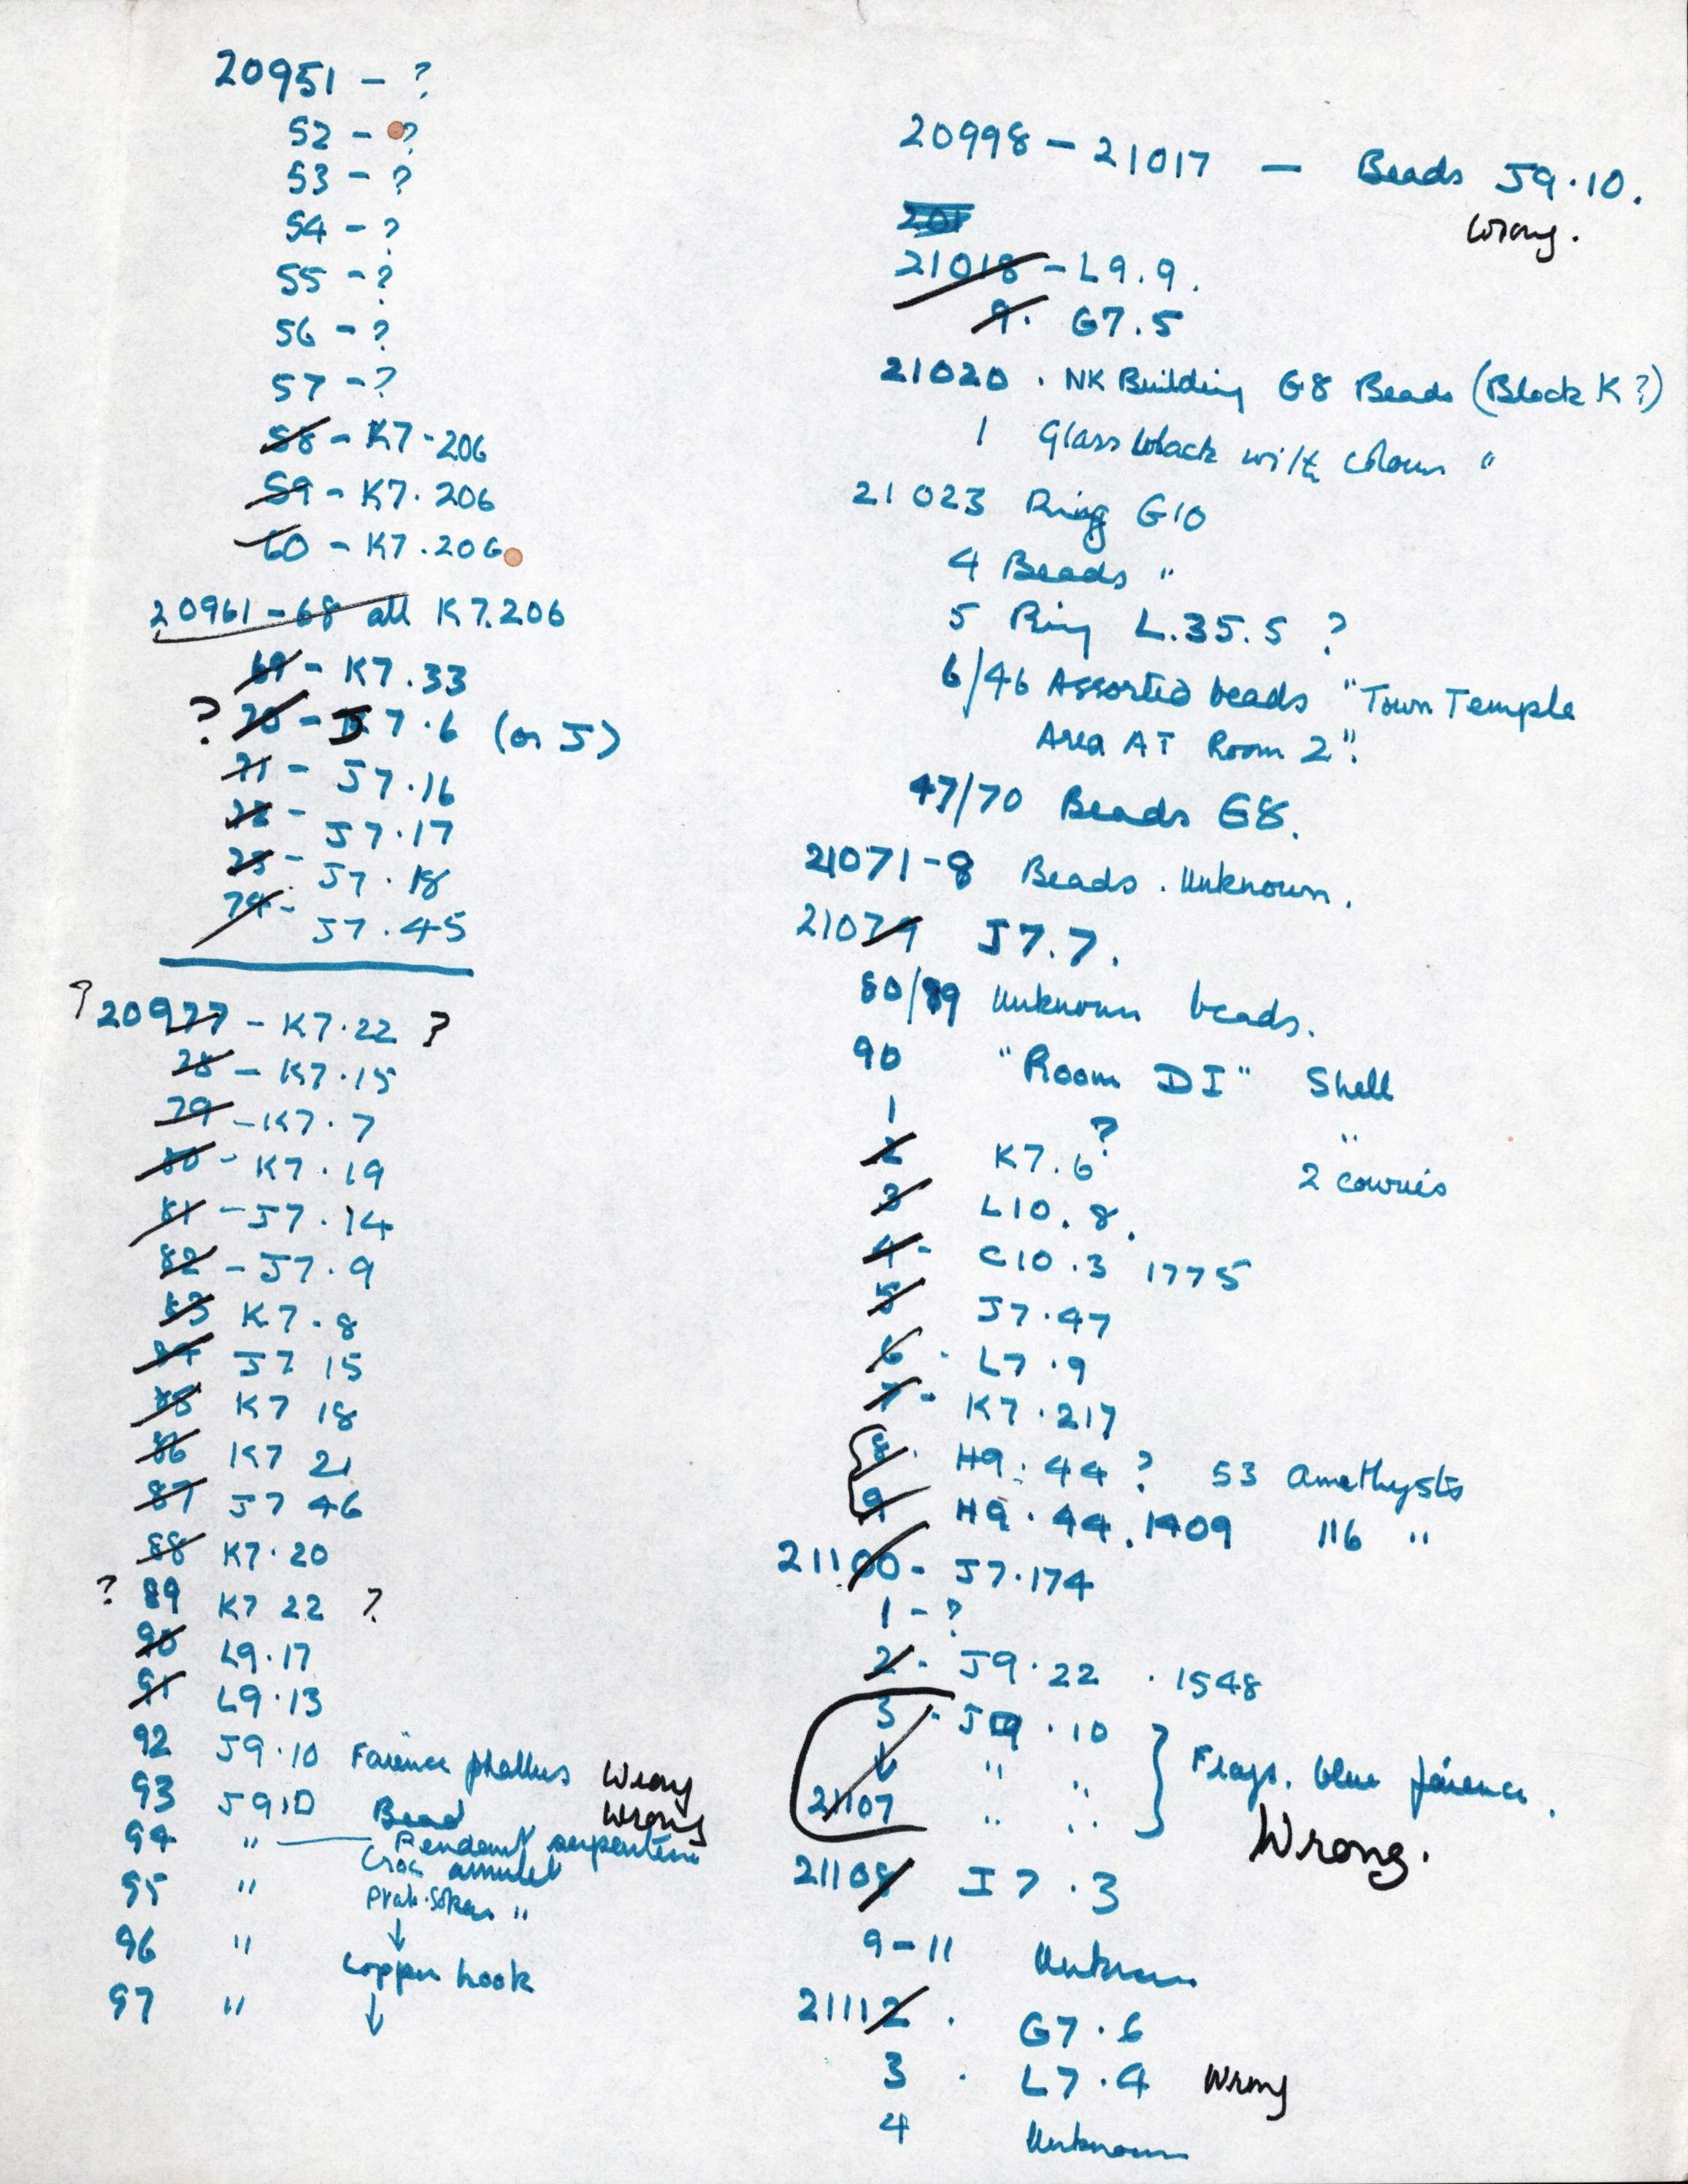 20951 - ?
52 - ?
53 - ?
54 - ?
55 - ?
56 - ?
57 - ?
58 - K7-206
59 - K7.206
60 - K7.206
20961-68 all K7.206
69 - K7.33
? 70 - J7.6 (or J)
71 - J7.16
72 - J7.17
73 - J7.18
74 - J7.45
? 20977 - K7.22 ?
78 - K7.15
79 - K7.7
80 - K7.19
81 - J7.14
82 - J7.9
83 K7.8
84 J7 15
85 K7 18
86 K7 21
87 J7 46
88 K7.20
? 89 K7 22 ?
90 L9.17
91 L9.13
92 J9.10 Faience phallus Wrong
93 J9.10 Bead Wrong
94 " Pendant serpentine
Croc amulet
95 " Ptah-Sokar "
96 " ↓
Copper hook
97 " ↓
20998 - 21017 - Beads J9.10.
Wrong.
201
21018 - L9.9.
9. G7.5
21020 . NK Building G8 Beads (Block K?)
1 Glass black with colour "
21023 Ring G10
4 Beads "
5 Ring L.35.5 ?
6/46 Assorted beads "Town Temple
Area AT Room 2".
47/70 Beads G8.
21071-8 Beads. Unknown.
21079 J7.7.
80/89 Unknown beads.
90 "Room DI" Shell
1 ? "
2 K7.6 2 cowries
3 L10.8.
4 - C10.3 1775
5 J7.47
6 . L7.9
7 - K7.217
8. H9.44 ? 53 Amethysts
9 H9.44.1409 116 "
21100 - J7.174
1 - ?
2 - J9.22 . 1548
3 - J9.10
↓ " " Frags. blue faience.
21107 " "
Wrong.
21108 I7.3
9-11 Unknown
21112 . G7.6
3 . L7.4 Wrong
4 Unknown